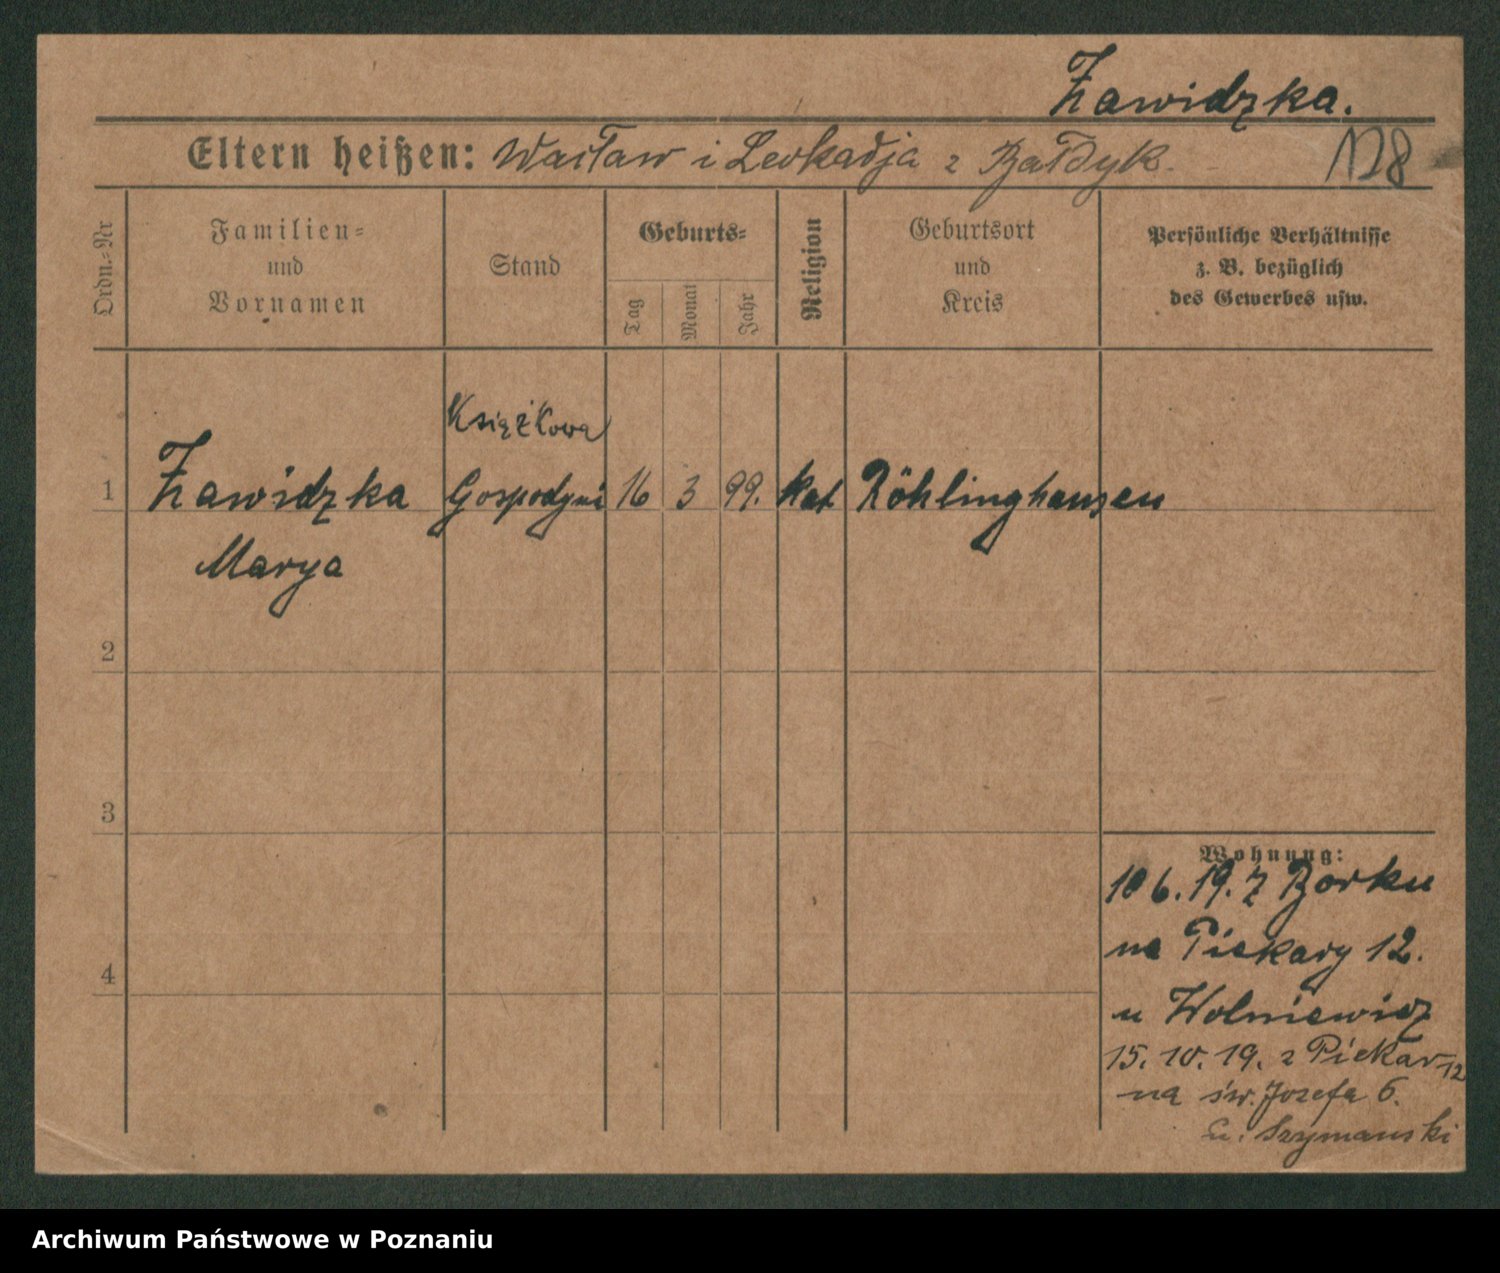 Zawidzka.
Eltern heißen: Wacław i Leokadja z Bałdyk. 128
Ordn.-Nr
Familien-
und
Vornamen
Stand
Geburts-
Tag
Monat
Jahr
Religion
Geburtsort
und
Kreis
Persönliche Verhältnisse
z. B. bezüglich
des Gewerbes usw.
Książkowa
1 Zawidzka Gospodyni 16 3 99. kat Röhlinghausen
Marya
2
3
4
Wohnung:
10 6. 19. z Borku
na Piekary 12.
u Wolniewicz
15. 10. 19. z Piekar 12
na św. Józefa 6.
u. Szymanski
Archiwum Państwowe w Poznaniu